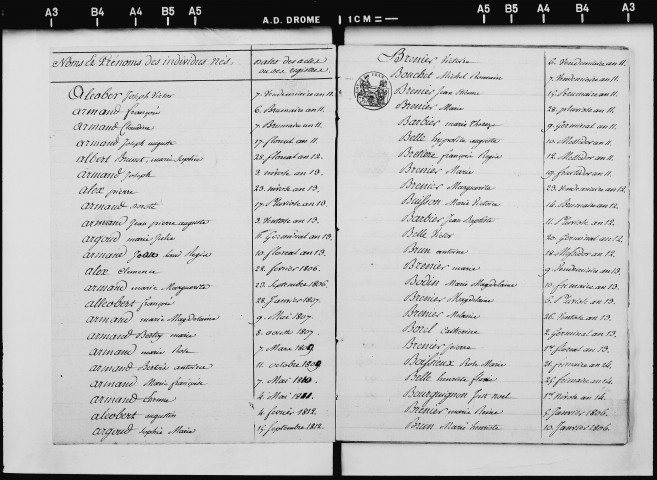 A3 B4 A4 B5 A5 A.D. DROME 1 CM A5 B5 A4 B4 A3
Noms & Prénoms des individus nés.
dates des actes
ou des registres.
Alcober Joseph Victor 7. Vendemiaire an 11.
armand françois 6. Brumaire an 11.
armand Claudine 7. Brumaire an 11.
armand Joseph auguste 17. floreal an 11.
albert Brunet, marie Sophie 28. floreal an 12.
armand Joseph 3. nivose an 13.
alex pierre 23. nivose an 13.
armand 17. Pluviose an 13.
armand Jean pierre auguste 3. Ventose an 13.
argoud marie Julie Germinal an 13.
armand Louis Régis 10. floreal an 13.
alex Clemence 28. fevrier 1806.
armand marie Marguerite 23. Septembre 1806.
alkobert françois 28. Janvier 1807.
armand marie Magdelaine 9. Mai 1807.
armand Bertry marie 8. aoust 1807.
armand marie Rose 7. Mars 1809
armand Bertrie antoine 11. octobre 1809
armand Marie françoise 7. Mai 1810.
armand 4. Mai 1811.
alcobert augustin 4. fevrier 1812.
argoud Sophie Marie 15. Septembre 1812.
Brenier Victoire 6. Vendemiaire an 11.
Bouchet Michel Romain 7. Vendemiaire an 11.
Brenier Jean 15. Brumaire an 11.
Brenier Marie 28. pluviose an 11.
Barbier marie Therese 9. Germinal an 11.
Belle hypolite auguste 10. Messidor an 11.
Bretiere françois Régis 12. Messidor an 11.
Brenier Marie 19. fructidor an 11.
Brenier Marguerite 23. Vendemiaire an 12.
Buisson Marie Victoire 14. Brumaire an 12.
Barbier Jean Baptiste 11. Pluviose an 12.
Belle Victor 20. Germinal an 12.
Brun antoine 18. Messidor an 12.
Brenier marie 9. Vendemiaire an 13.
Bodin Marie Magdelaine 10. frimaire an 13.
Brenier Magdelaine 6. Pluviose an 13.
Brenier Melanie 26. Ventose an 13.
Borel Catherine 2. Germinal an 13.
Brenier pierre 1er floreal an 13.
Boissieux Rose Marie 21. frimaire an 14.
Belle henriette florie 25. frimaire an 14.
Bourguignon Just noel 1er Nivose an 14.
Brenier marie Reine 5. Janvier 1806.
Brun Marie henriette 10. Janvier 1806.